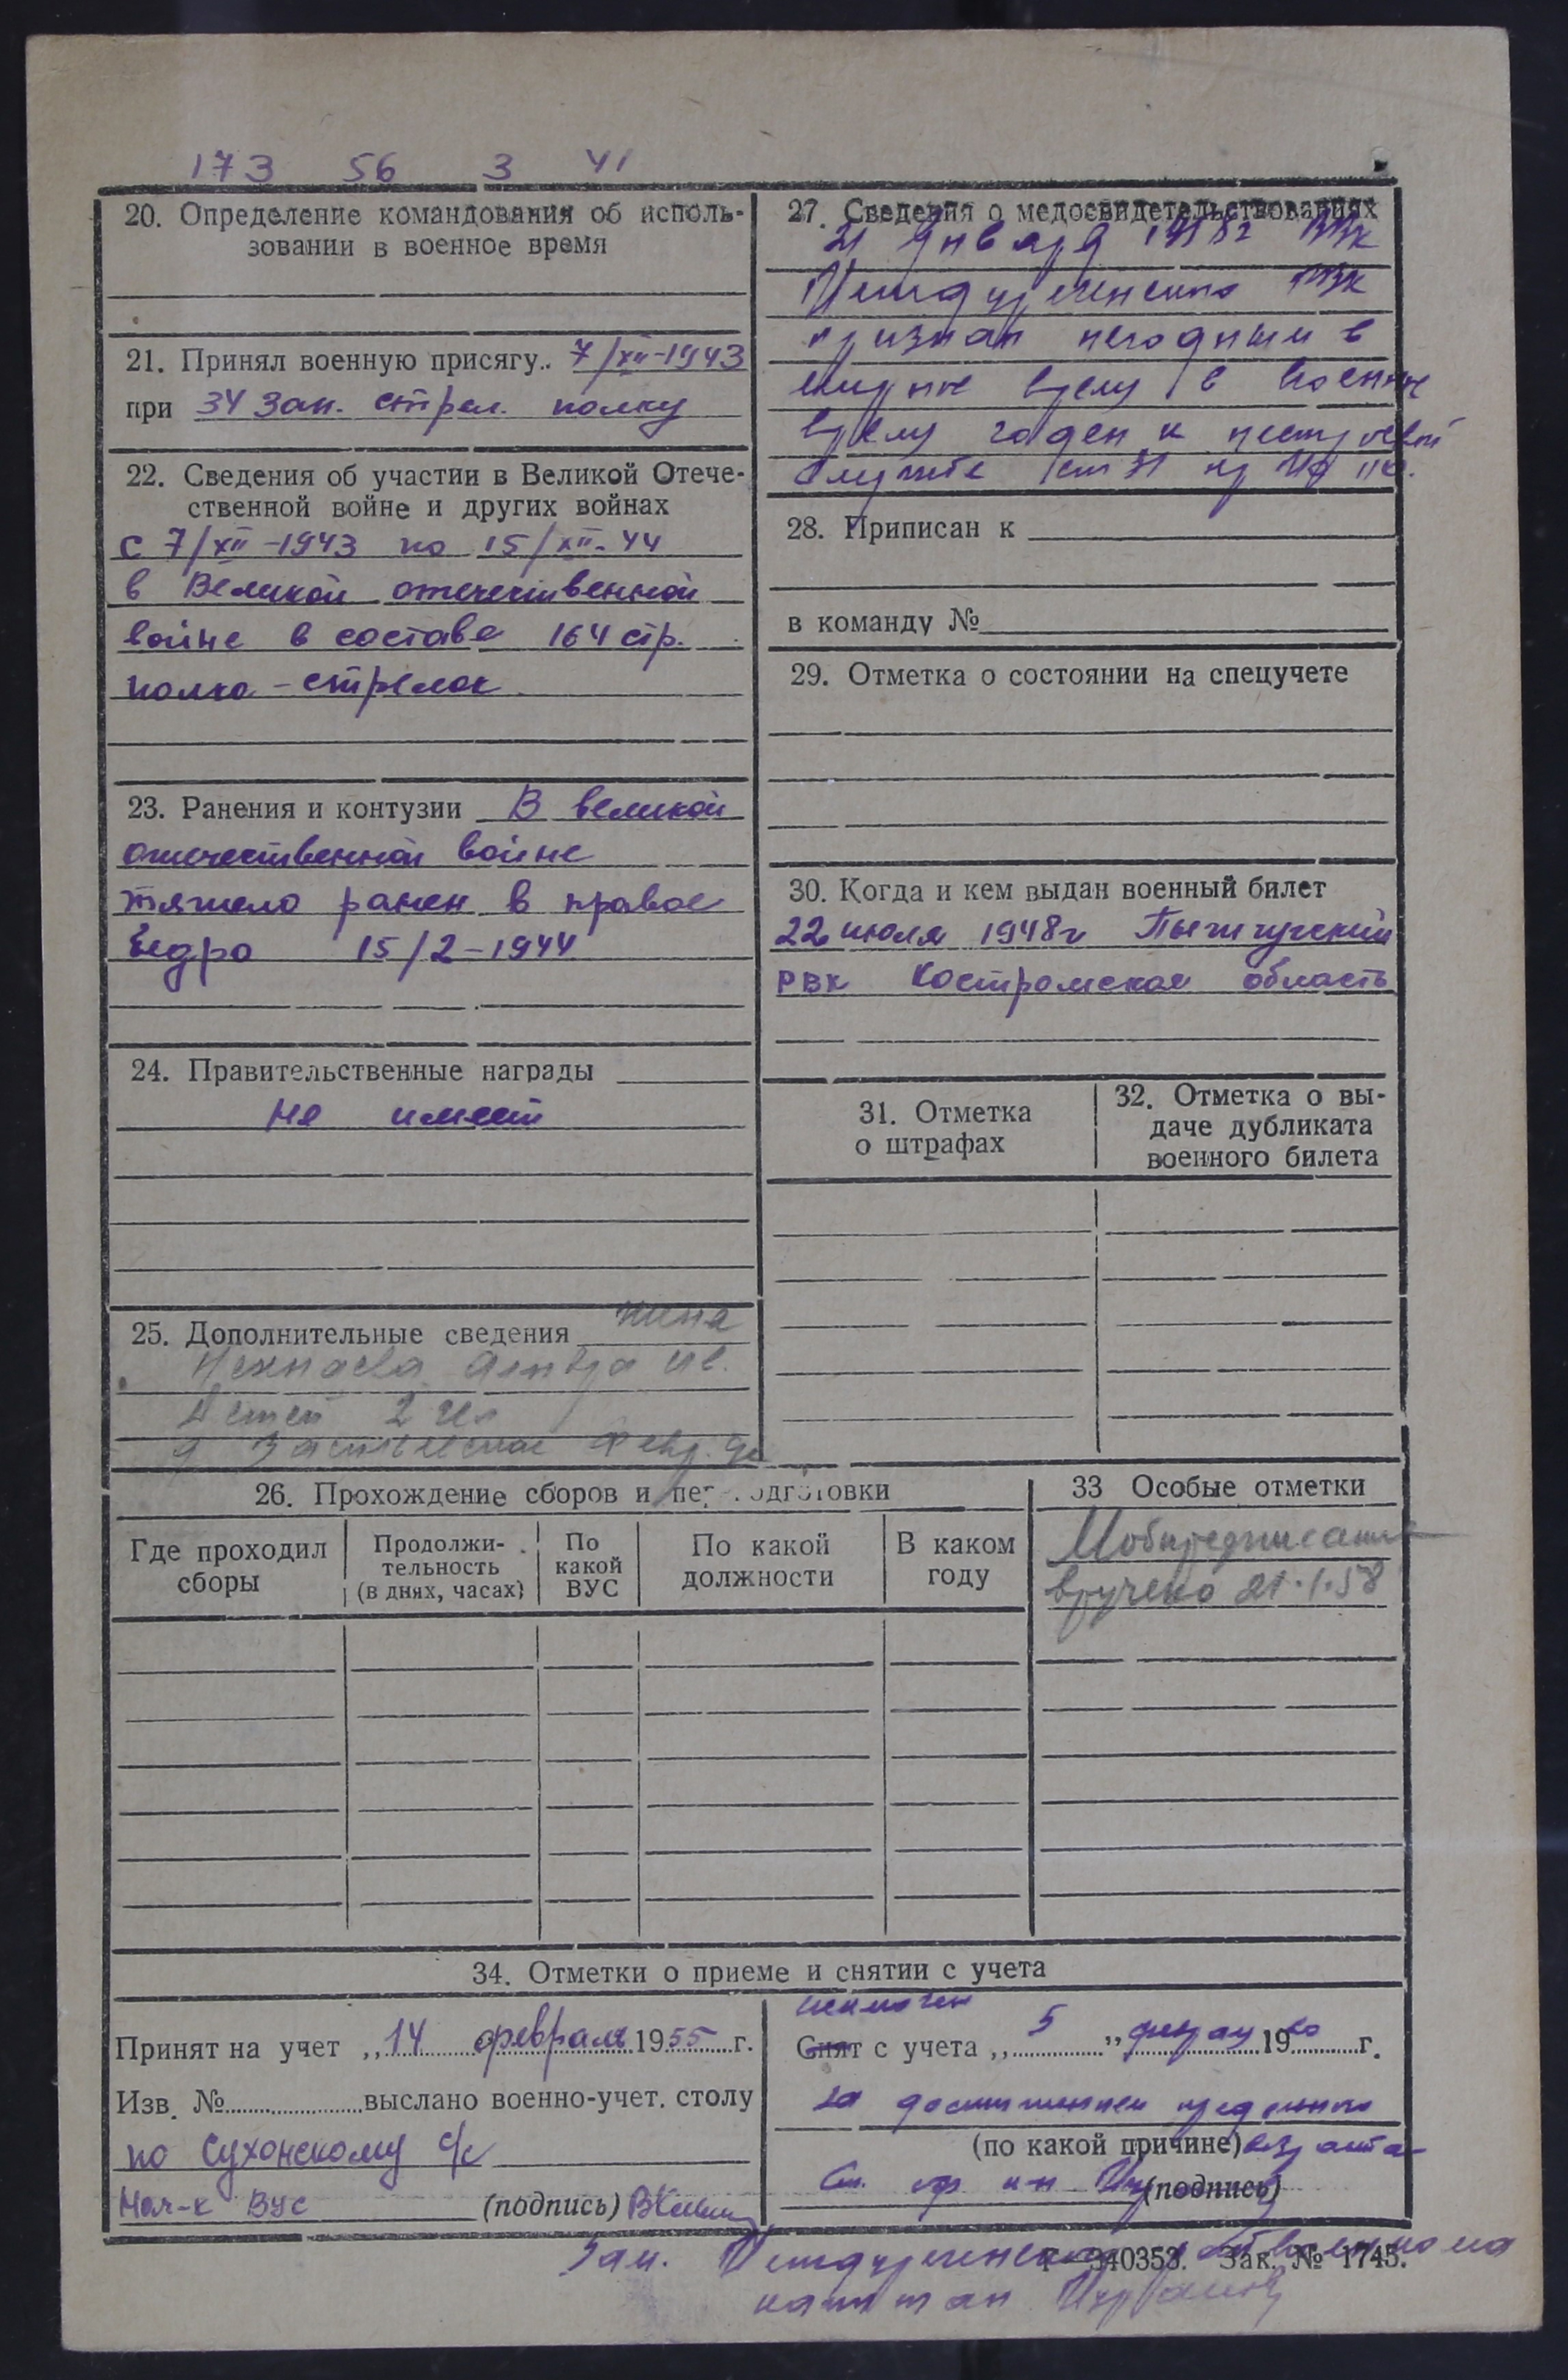 173 56 3 41
20. Определение командования об исполь-
зовании в военное время
21. Принял военную присягу.. 7/XII-1943
при 34 зап. стрел. полку
22. Сведения об участии в Великой Отече-
ственной войне и других войнах
с 7/XII-1943 по 15/XII-44
в Великой отечественной
войне в составе 164 стр.
полка - стрелок
23. Ранения и контузии В великой
отечественной войне
тяжело ранен в правое
бедро 15/2-1944
24. Правительственные награды
не имеет
25. Дополнительные сведения жена
Ив.
Детей 2 чел
д
27. Сведения о медосвидетельствованиях
21 января 1958г ВВК
РВК
признан негодным в
мирное время в военное
время годен к нестроевой
службе ст 31
28. Приписан к
в команду №
29. Отметка о состоянии на спецучете
30. Когда и кем выдан военный билет
22 июля 1948г Пыщугский
РВК Костромская область
31. Отметка
о штрафах
32. Отметка о вы-
даче дубликата
военного билета
26. Прохождение сборов и переподготовки
Где проходил
сборы
Продолжи-
тельность
(в днях, часах)
По
какой
ВУС
По какой
должности
В каком
году
33 Особые отметки
Мобпредписание
вручено 21.1.58
34. Отметки о приеме и снятии с учета
Принят на учет „14 февраля 1955 г.
Изв. № выслано военно-учет. столу
по Сухонскому с/с
Нач-к ВУС (подпись)
исключен
Снят с учета „5" февраля 1960 г.
за достижением предельного
(по какой причине) возраста
(подпись)
Зам.
Г—340353. Зак. № 1745.
капитан